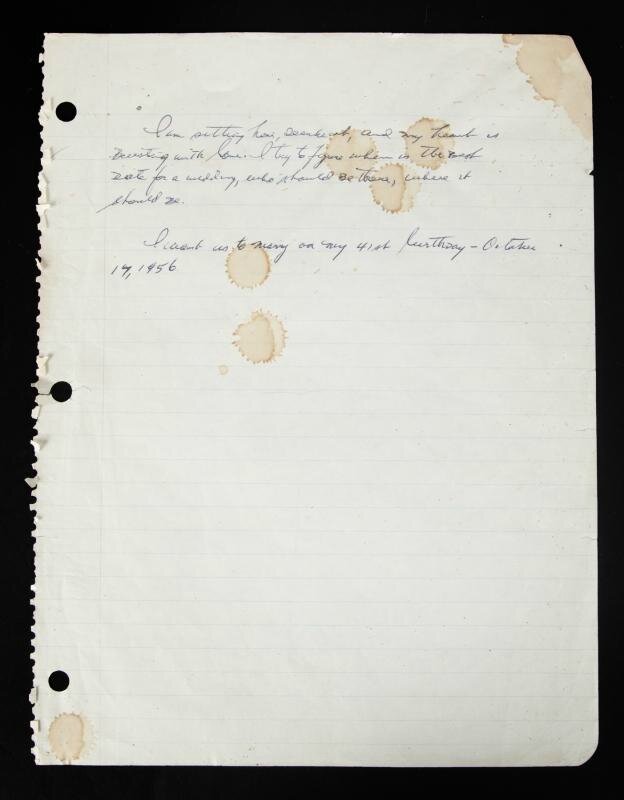 I am sitting here, sweetheart, and my heart is
bursting with love. I try to figure when is the best
date for a wedding, who should be there, where it
should be.
I want us to marry on my 41st birthday - October
17, 1956